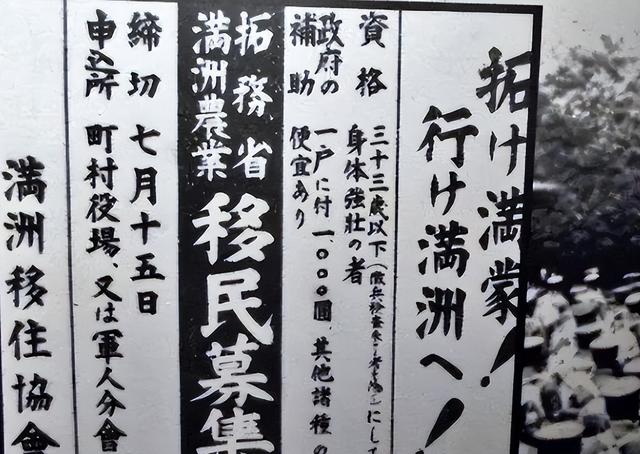 拓け満蒙!
行け満洲へ!
資格 三十三歳以下(徴兵検査)にして
身体強壮の者
政府の補助 一戸に付一、〇〇〇圓、其他諸種の
便宜あり
拓務省
満洲農業
移民募集
締切 七月十五日
申込所 町村役場、又は軍人分會
満洲移住協會